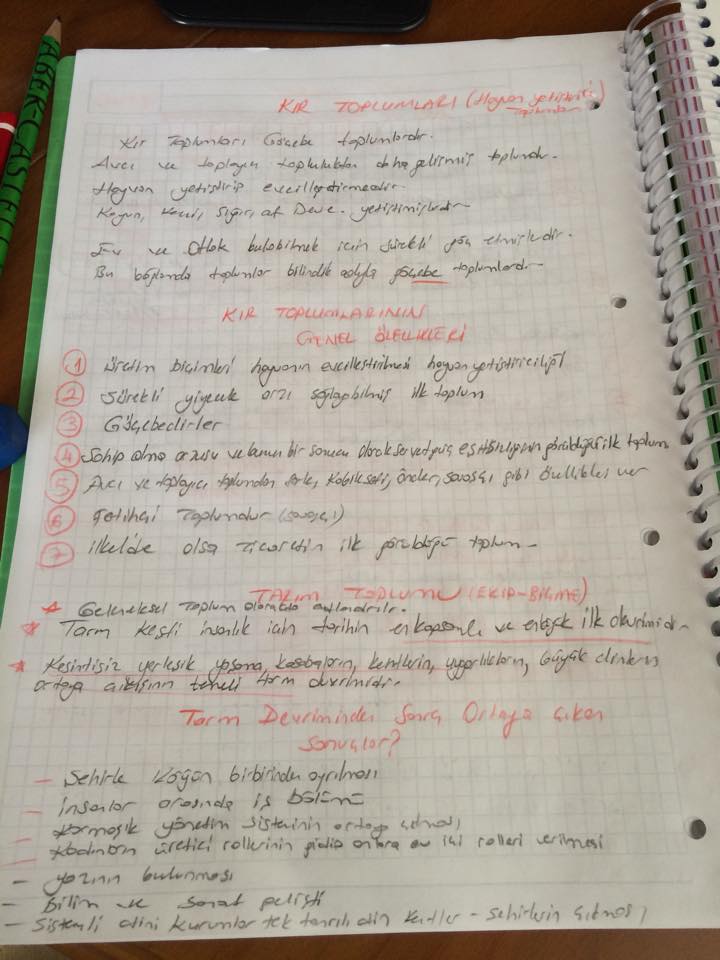 ABER-CASTE
KIR TOPLUMLARI (Hayvan yetiştirici
toplumlar)
Kır Toplumları Göçebe toplumlardır.
Avcı ve toplayıcı topluluktan daha gelişmiş toplumdur.
Hayvan yetiştirip evcilleştirmedir.
Koyun, Keçi, Sığır, at Deve. yetiştirmişlerdir.
ve Otlak bulabilmek için sürekli göç etmişlerdir.
Bu bağlamda toplumlar bilindik adıyla göçebe toplumlardır.
KIR TOPLUMLARININ
GENEL ÖZELLİKLERİ
1 Üretim biçimleri hayvanın evcilleştirilmesi hayvan yetiştiriciliği
2 Sürekli yiyecek arzı sağlayabilmiş ilk toplum
3 Göçebedirler
4 Sahip olma arzusu ve bunun bir sonucu olarak servet eşitsizliğinin görüldüğü ilk toplum
5 Avcı ve toplayıcı toplumdan Kabile şefi, Önder, savaşçı gibi özellikleri var
6 Fetihçi Toplumdur (savaşçı)
7 ilkelde olsa ticaretin ilk görüldüğü toplum
TARIM TOPLUMU (EKİP-BİÇME)
Geleneksel Toplum olarakta adlandırılır.
Tarım Keşfi insanlık için tarihin en kapsamlı ve en büyük ilk devrimidir.
Kesintisiz yerleşik yaşama, kasabaların, kentlerin, uygarlıkların, büyük dinlerin
ortaya çıkışının temeli tarım devrimidir.
Tarım Devriminden Sonra Ortaya çıkan
Sonuçlar?
- Şehirle Köyün birbirinden ayrılması
- İnsanlar arasında iş bölümü
- Karmaşık yönetim sisteminin ortaya çıkması
- Kadınların üretici rollerinin gidip onlara ev içi rolleri verilmesi
- yazının bulunması
- Bilim ve Sanat gelişti
- Sistemli dini kurumlar tek tanrılı din Kentler - şehirlerin çıkması